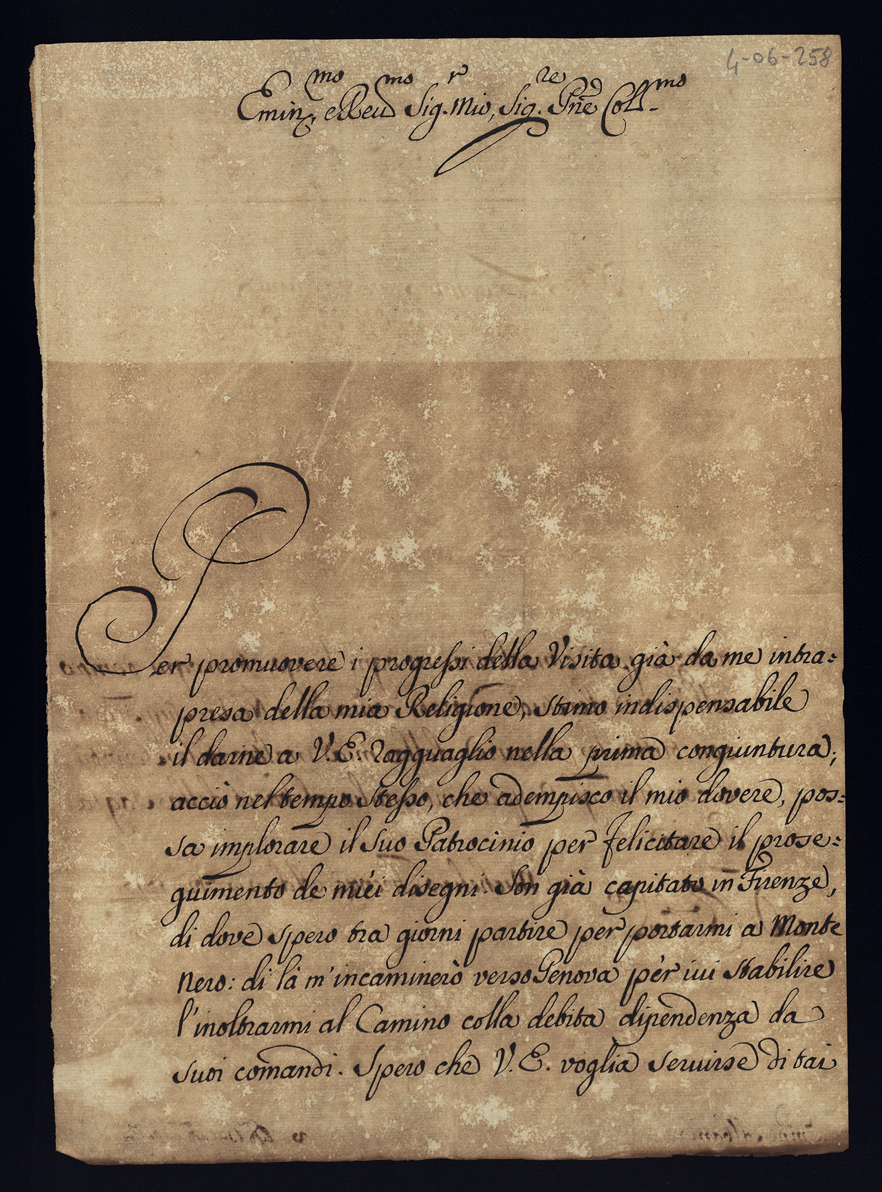 4-06-258
Emin.mo e Reu.mo Sig.r Mio, Sig.re Pne Coll.mo
Per promuovere i progressi della Visita già da me intra=
presa della mia Religione, stimo indispensabile
il darne a V.E. ragguaglio nella prima congiuntura;
acciò nel tempo stesso, che adempisco il mio dovere, pos=
sa implorare il suo Patrocinio per felicitare il prose=
guimento de miei disegni Son già capitato in Firenze,
di dove spero tra giorni partire per portarmi a Monte
Nero: di là m'incaminerò verso Genova per iui stabilire
l'inoltrarmi al Camino colla debita dipendenza da
suoi comandi. Spero che V.E. voglia seruirse di tai